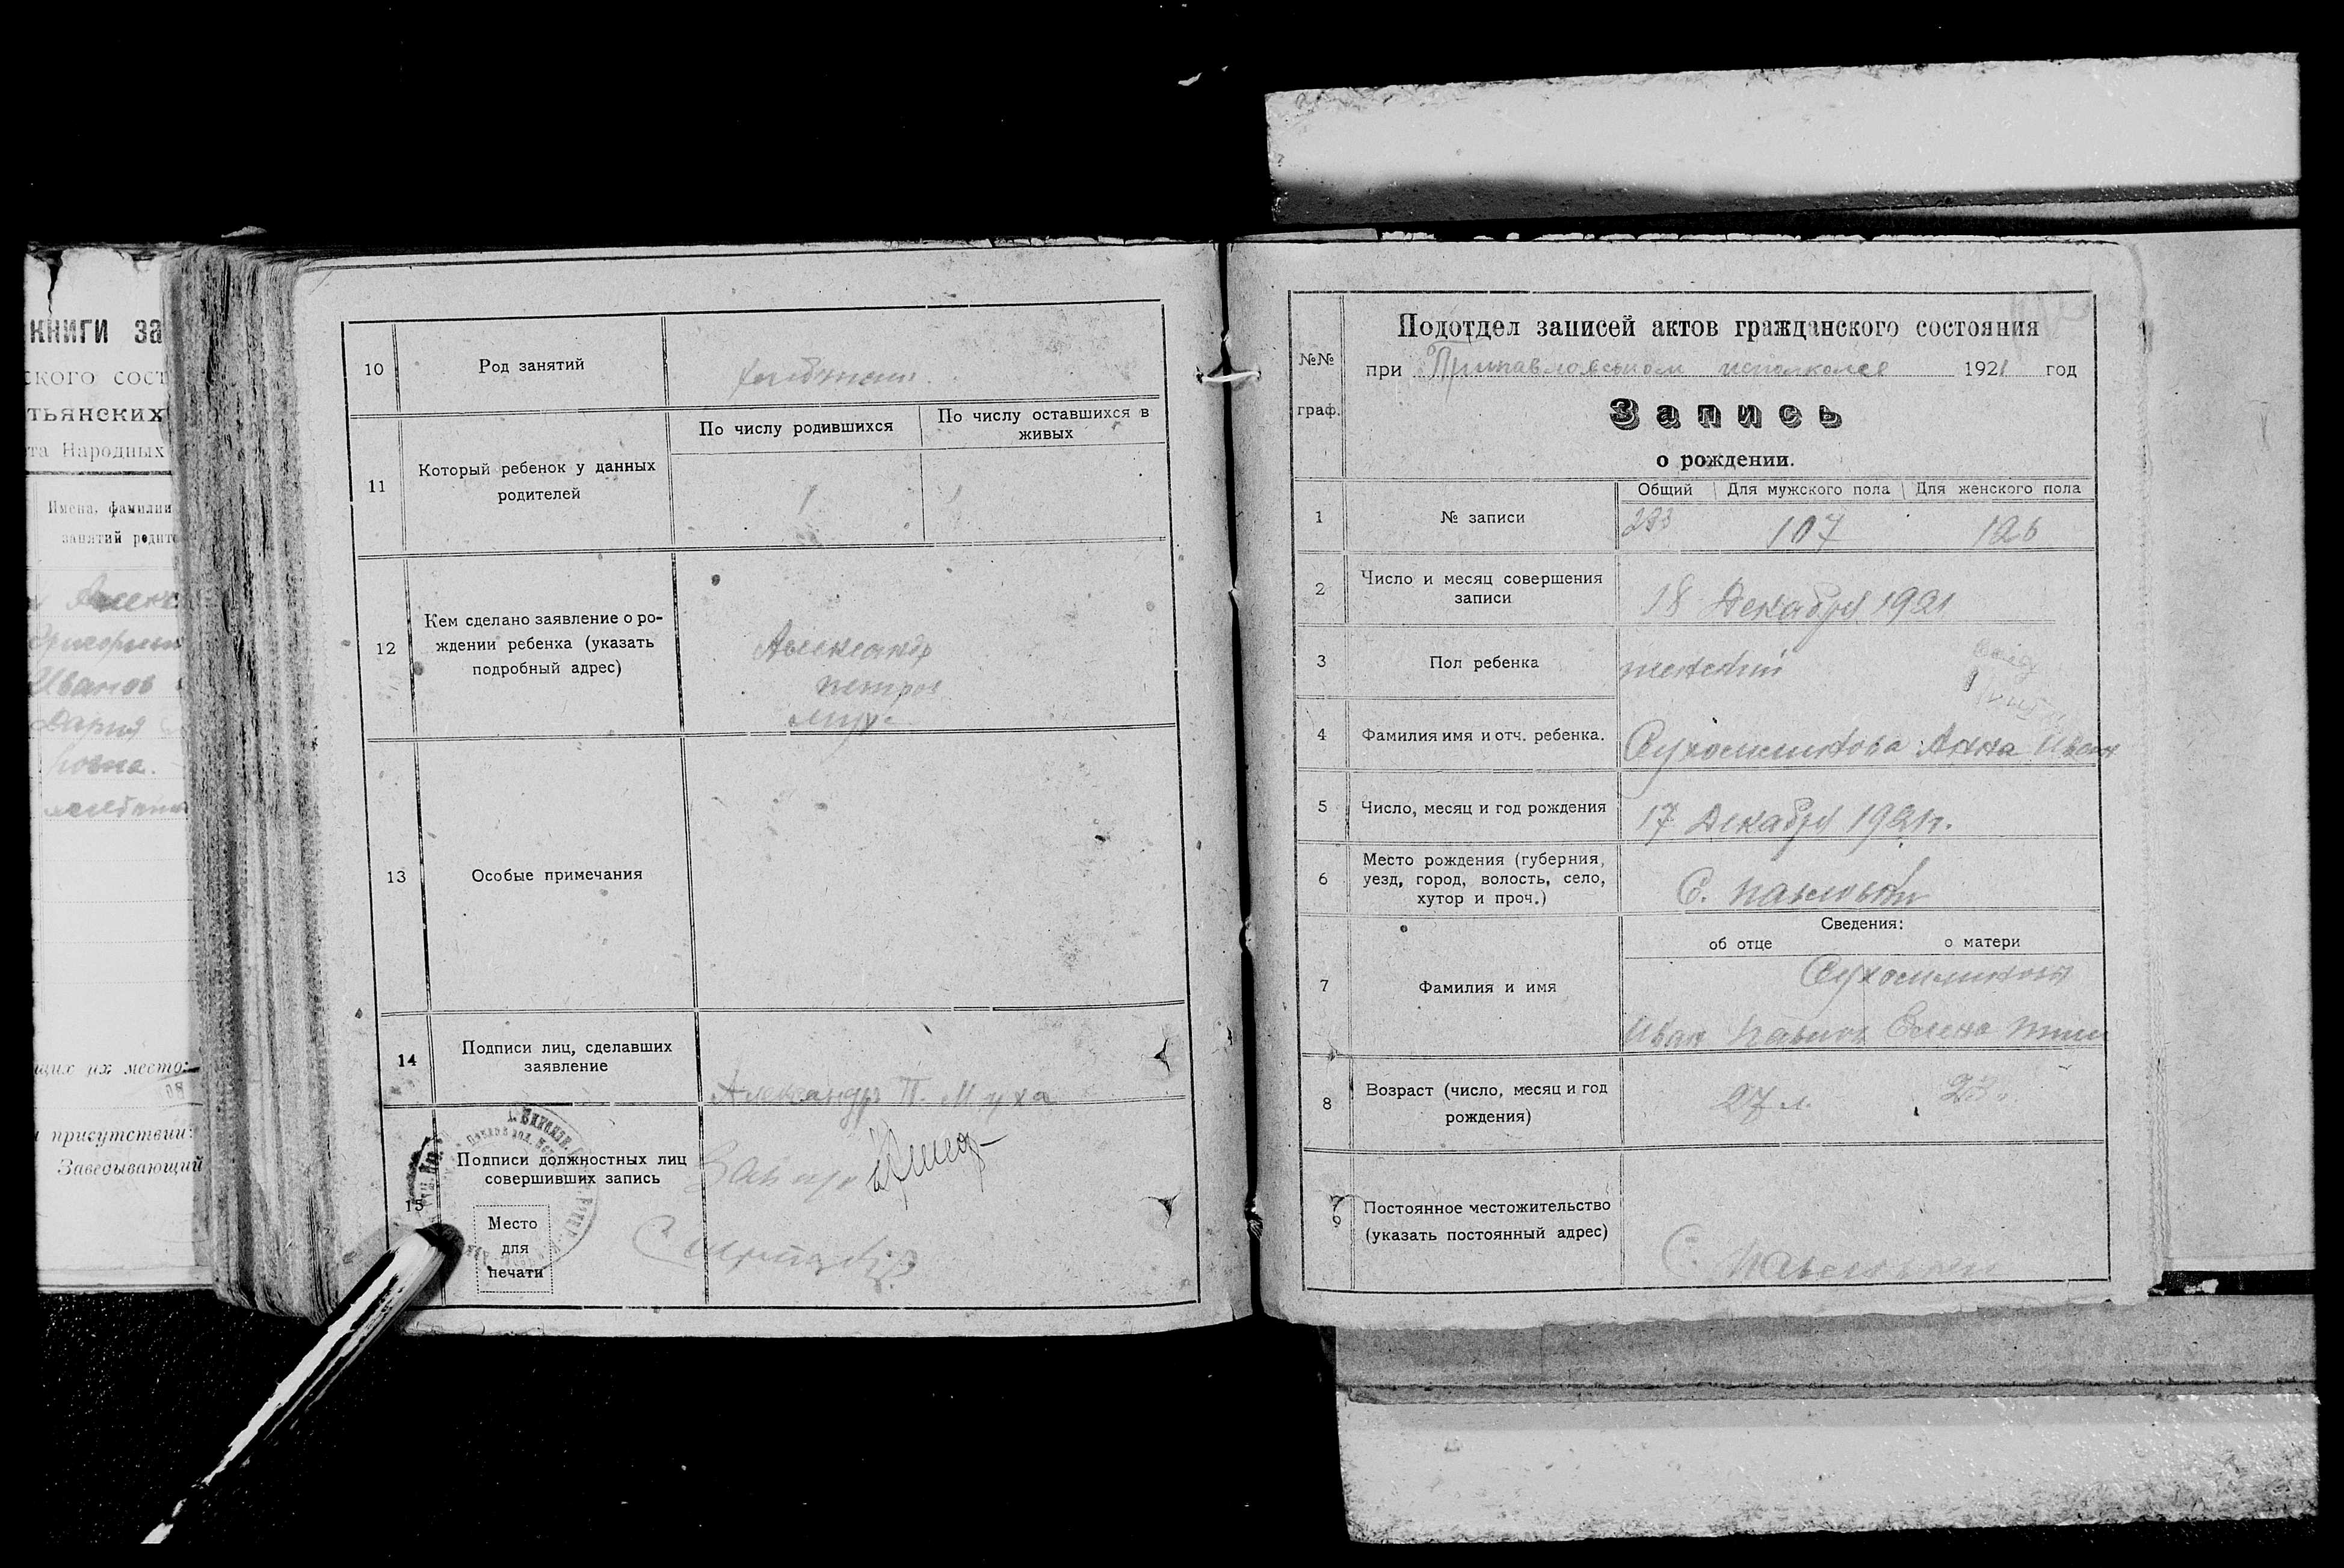 книги за
ского сост
тьянских
та Народных
Имена, фамилии
занятий родите
Иванов
Дария
щих их место:
присутствии:
Заведывающий
10 Род занятий
11 Который ребенок у данных
родителей
По числу родившихся
По числу оставшихся в
живых
1 1
12 Кем сделано заявление о ро-
ждении ребенка (указать
подробный адрес)
Александр
петров
Муха
13 Особые примечания
14 Подписи лиц, сделавших
заявление
Александр П. Муха
15 Подписи должностных лиц
совершивших запись
Место
для
печати
№№
граф.
Подотдел записей актов гражданского состояния
при исполкоме 1921 год
Запись
о рождении.
1 № записи
Общий Для мужского пола Для женского пола
107 126
2 Число и месяц совершения
записи
18 Декабря 1921
3 Пол ребенка
женский
4 Фамилия имя и отч. ребенка.
Анна Иван
5 Число, месяц и год рождения
17 Декабря 1921г.
6 Место рождения (губерния,
уезд, город, волость, село,
хутор и проч.)
С. Павловки
Сведения:
об отце о матери
7 Фамилия и имя
Иван Павлов Елена
8 Возраст (число, месяц и год
рождения)
27 л. 23
9 Постоянное местожительство
(указать постоянный адрес)
С. Павловки